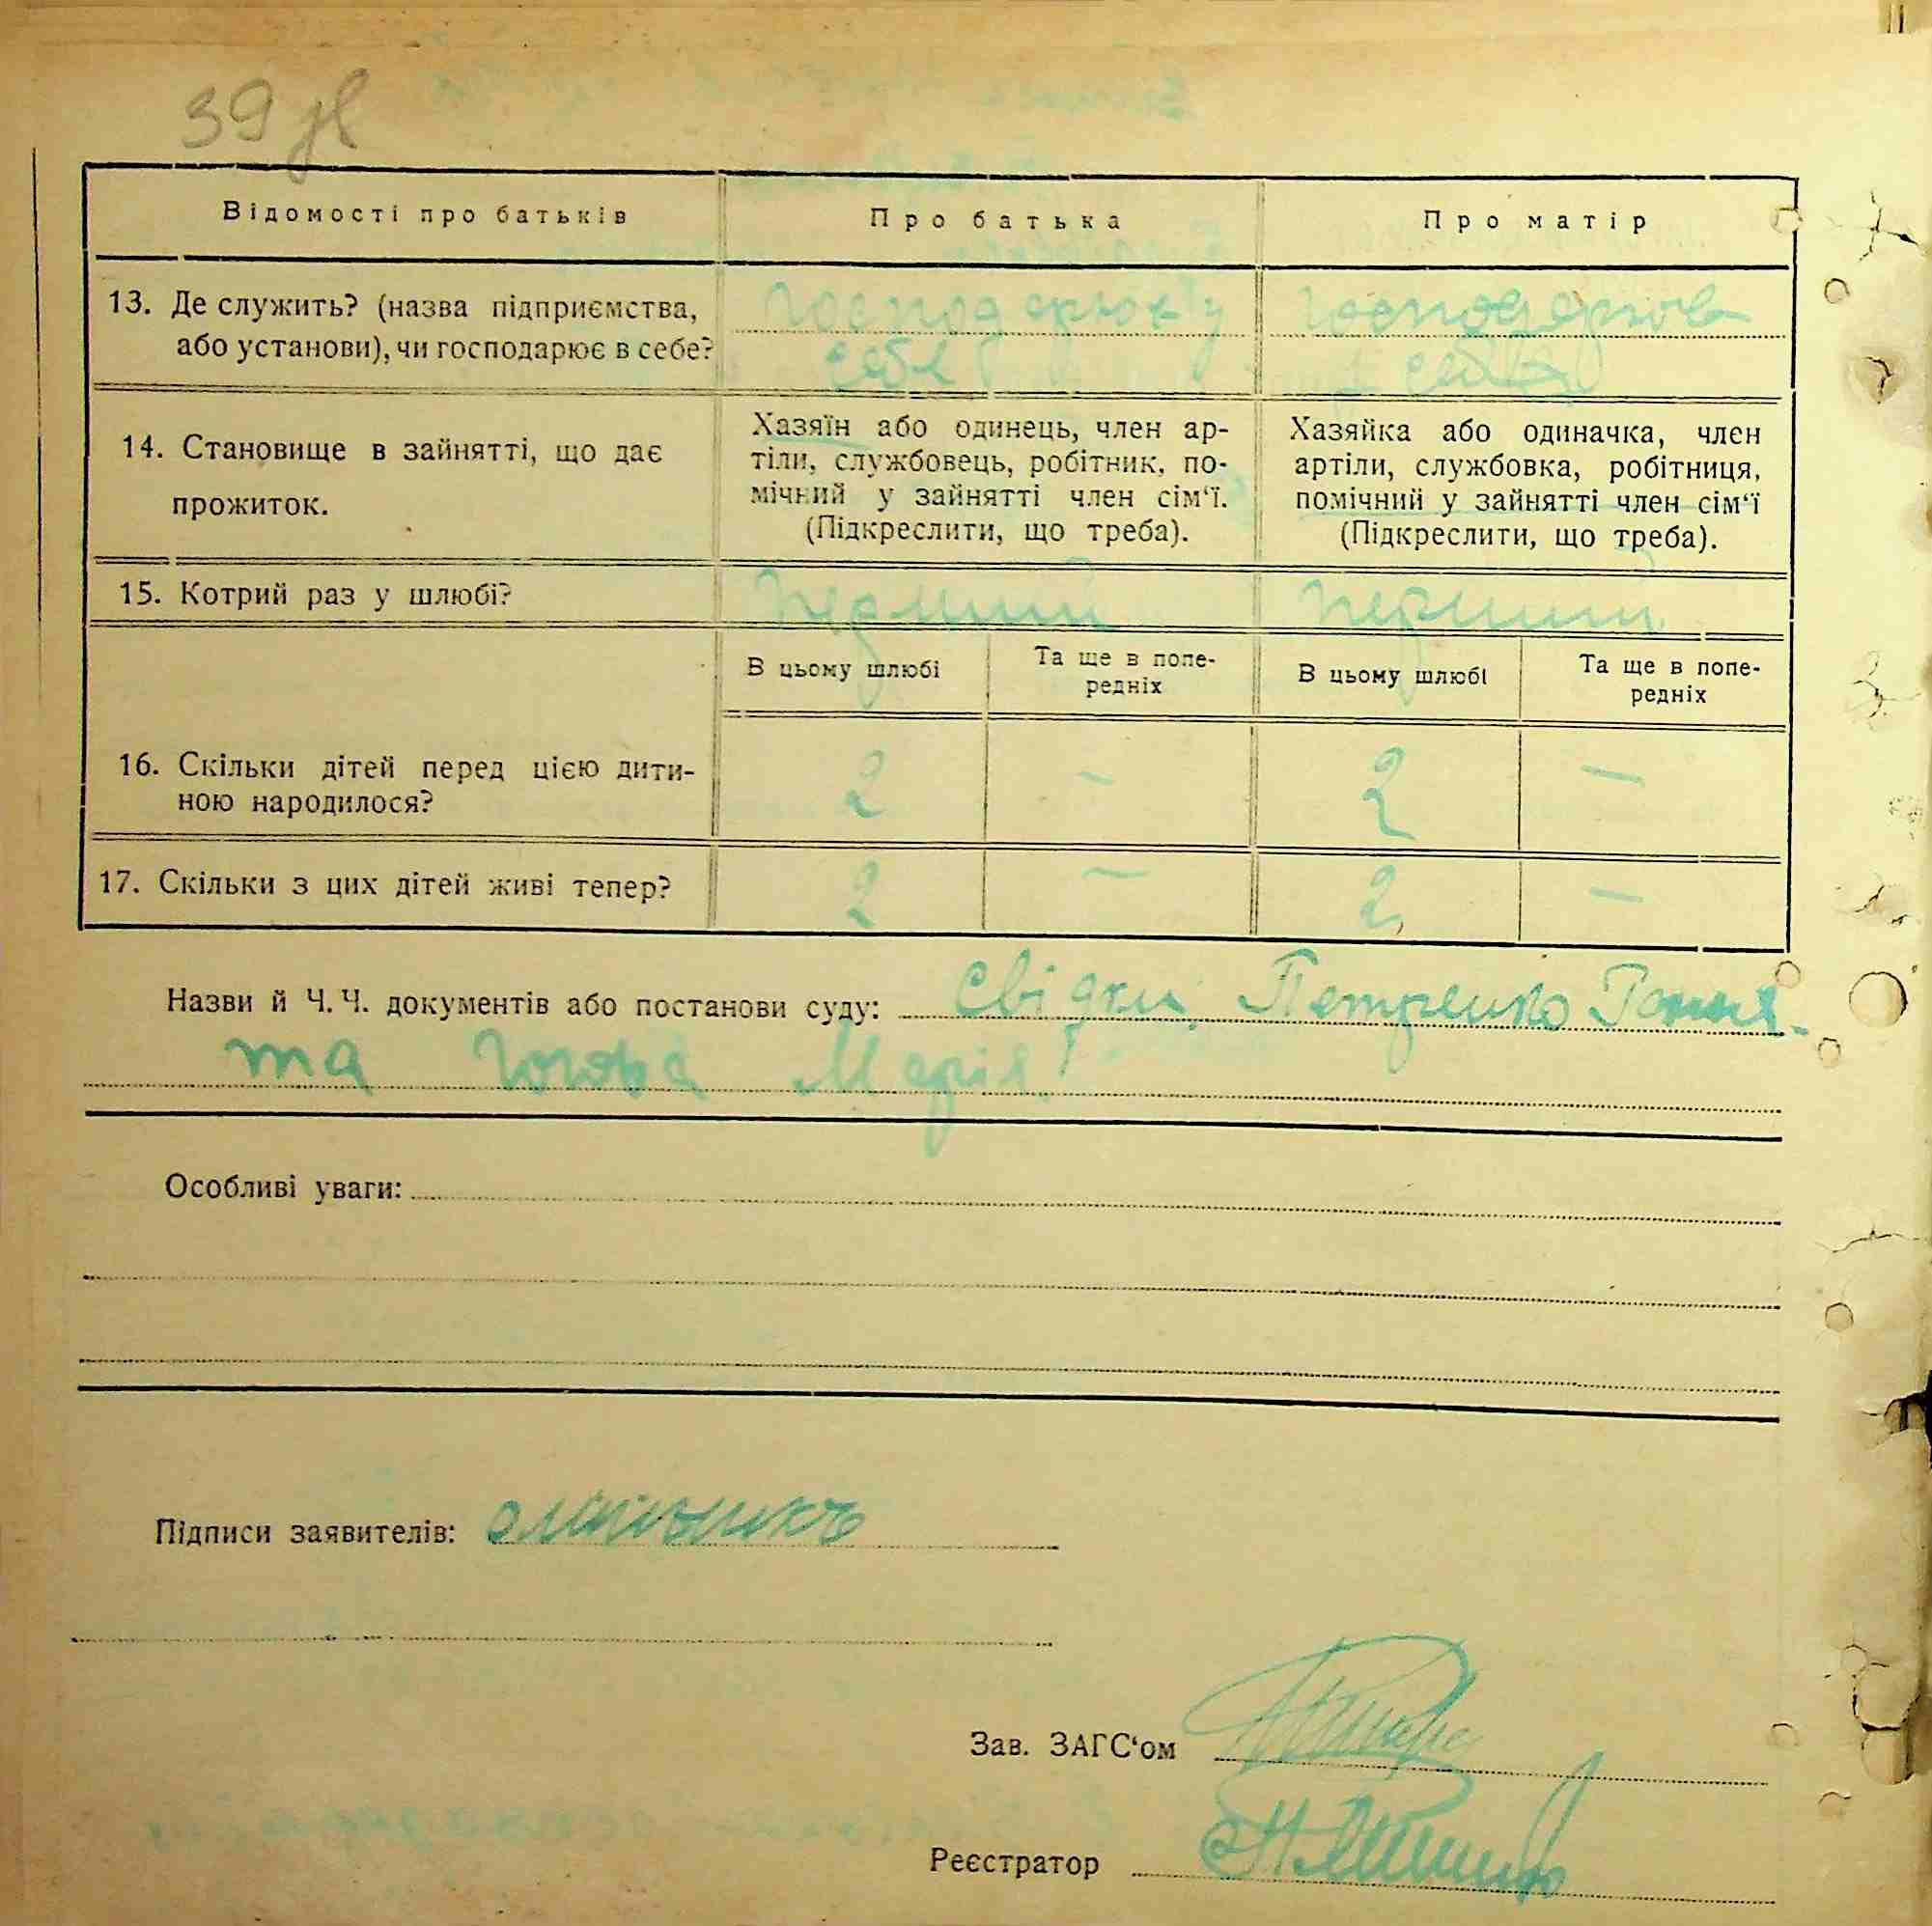 39
Відомості про батьків
Про батька
Про матір
13. Де служить? (назва підприємства,
або установи), чи господарює в себе?
себе
14. Становище в зайнятті, що дає
прожиток.
Хазяїн або одинець, член ар-
тіли, службовець, робітник, по-
мічний у зайнятті член сім‘ї.
(Підкреслити, що треба).
Хазяйка або одиначка, член
артіли, службовка, робітниця,
помічний у зайнятті член сім‘ї
(Підкреслити, що треба).
15. Котрий раз у шлюбі?
перший
перший
В цьому шлюбі
Та ще в попе-
редніх
В цьому шлюбі
Та ще в попе-
редніх
16. Скільки дітей перед цією дити-
ною народилося?
2 — 2 —
17. Скільки з цих дітей живі тепер?
2 — 2 —
Назви й Ч. Ч. документів або постанови суду: Свідки Петренко
та Марія
Особливі уваги:
Підписи заявителів:
Зав. ЗАГС‘ом
Реєстратор